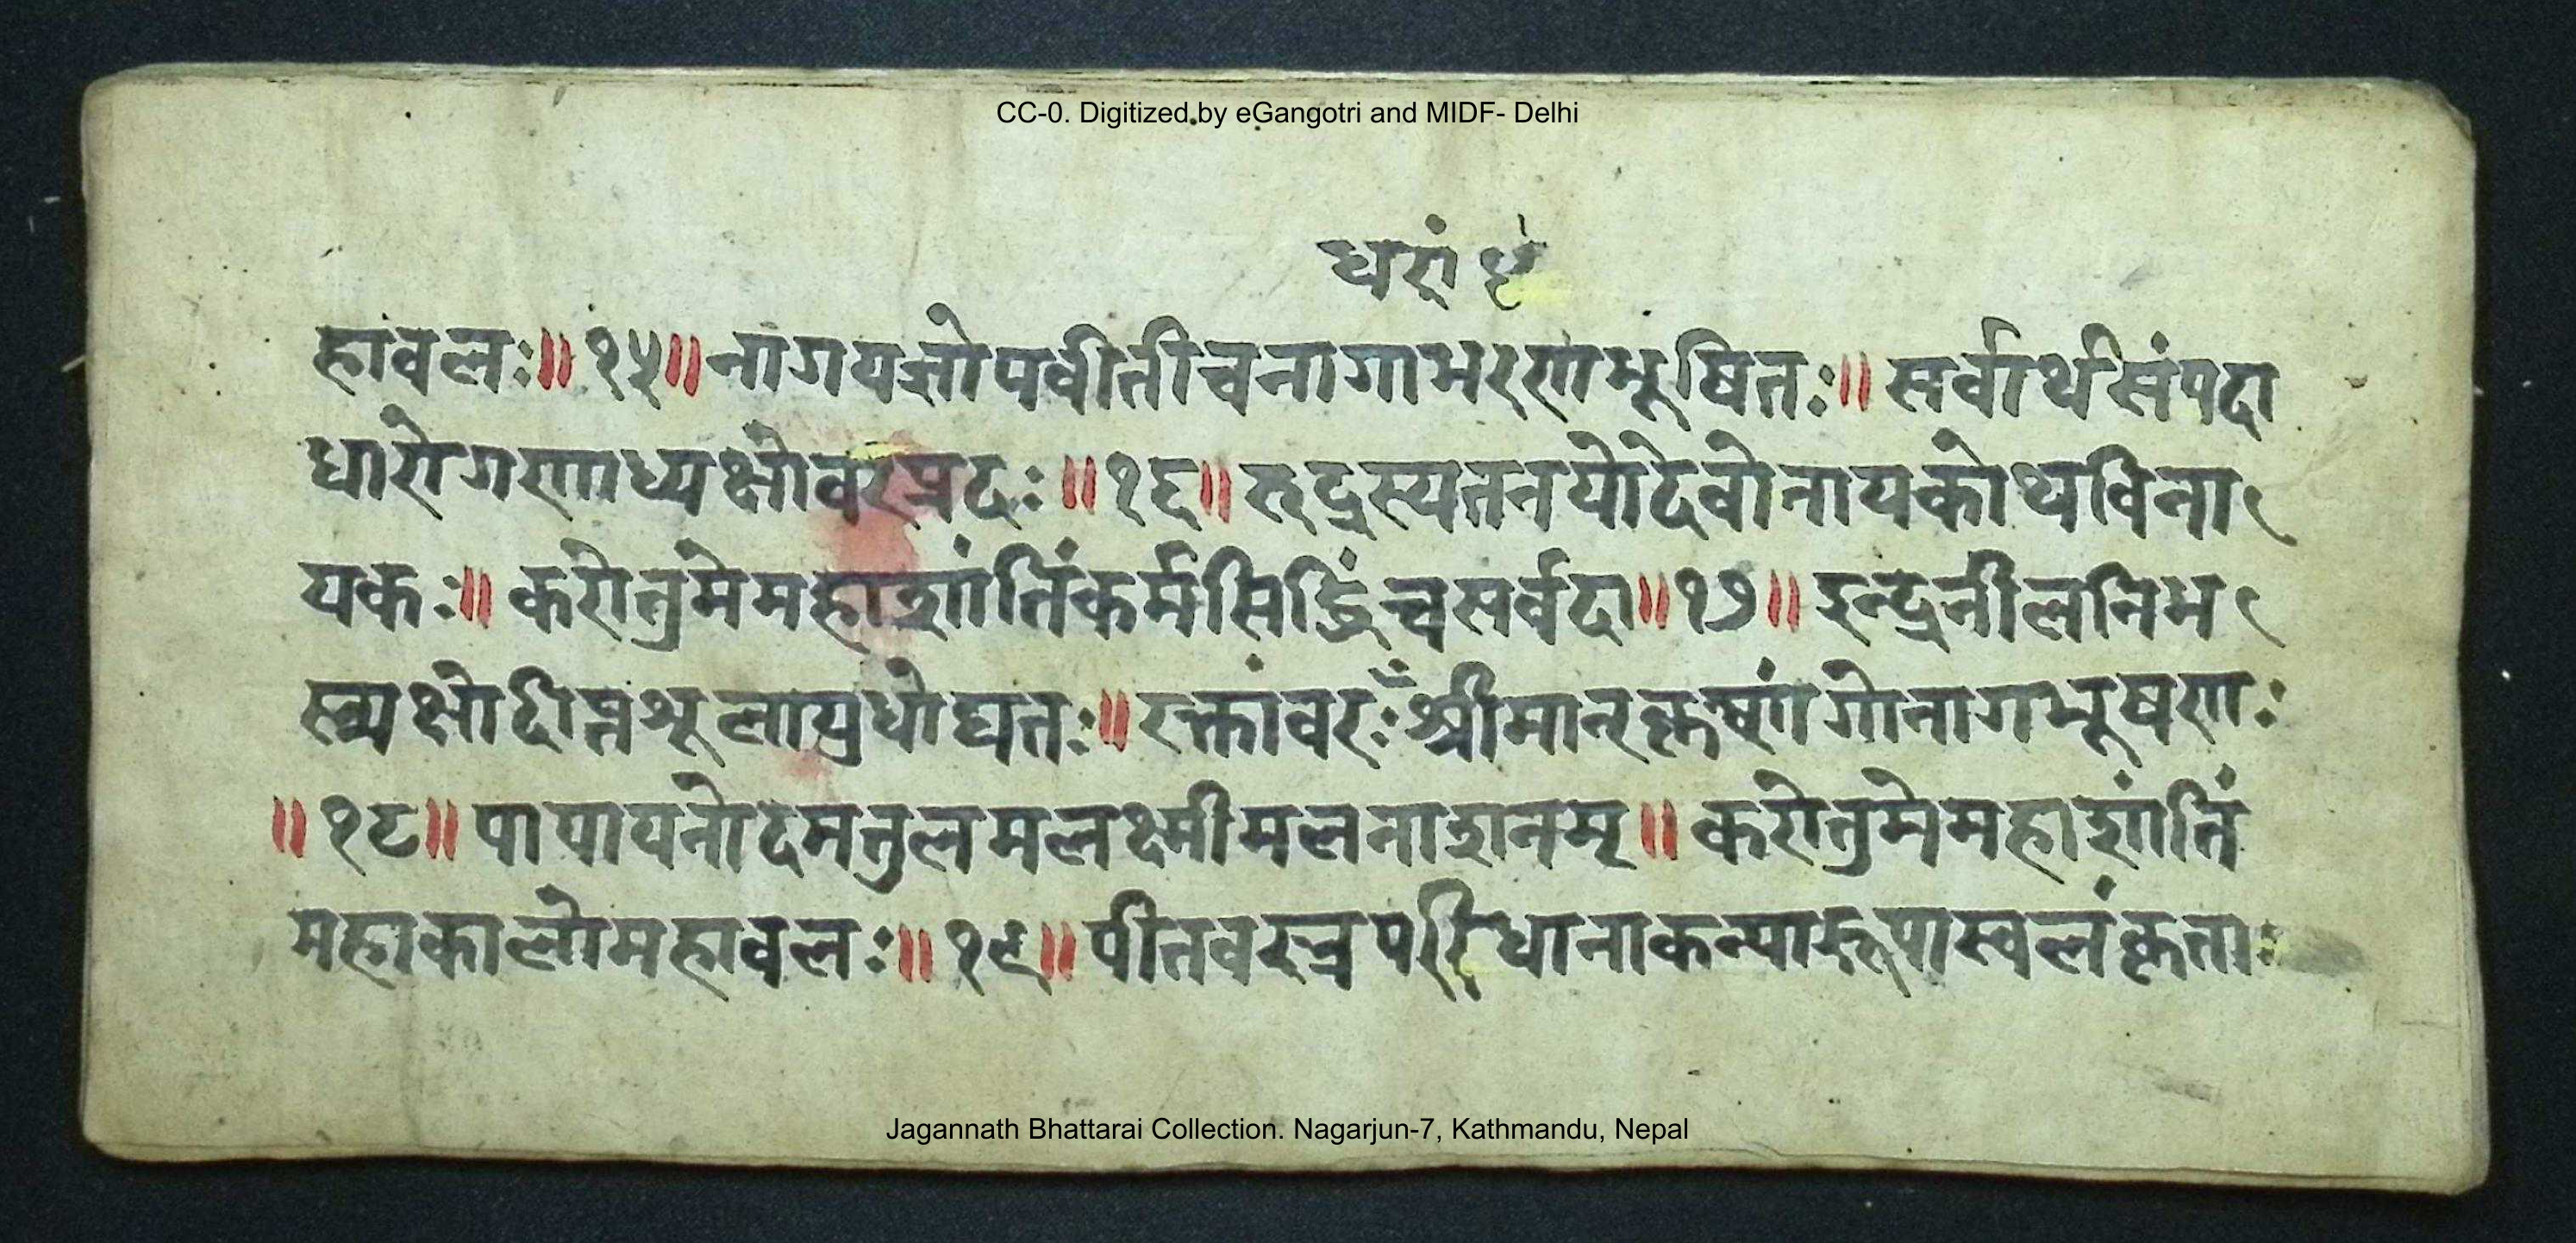 CC-0. Digitized by eGangotri and MIDF- Delhi
हावलः॥१५॥नागयज्ञोपवीतीचनागाभरणभूषितः॥सर्वार्थसंपदा
धारोगणाध्यक्षोवरप्रदः॥१६॥रुद्रस्यतनयोदेवोनायकोथविना
यकः॥करोतुमेमहाशांतिंकर्मसिद्धिंच्चसर्वदा॥१७॥इन्द्रनीलनिभ
स्त्र्यक्षोदीप्तशूलायुधोद्यतः॥रक्तांवरःश्रीमान्कृष्णांगोनागभूषणः
॥१८॥पापापनोदमतुलमलक्ष्मीमलनाशनम्॥करोतुमेमहाशांतिं
महाकालोमहावलः॥१९॥पीतवस्त्रपरिधानाकन्यारूपास्वलंकृता
Jagannath Bhattarai Collection. Nagarjun-7, Kathmandu, Nepal